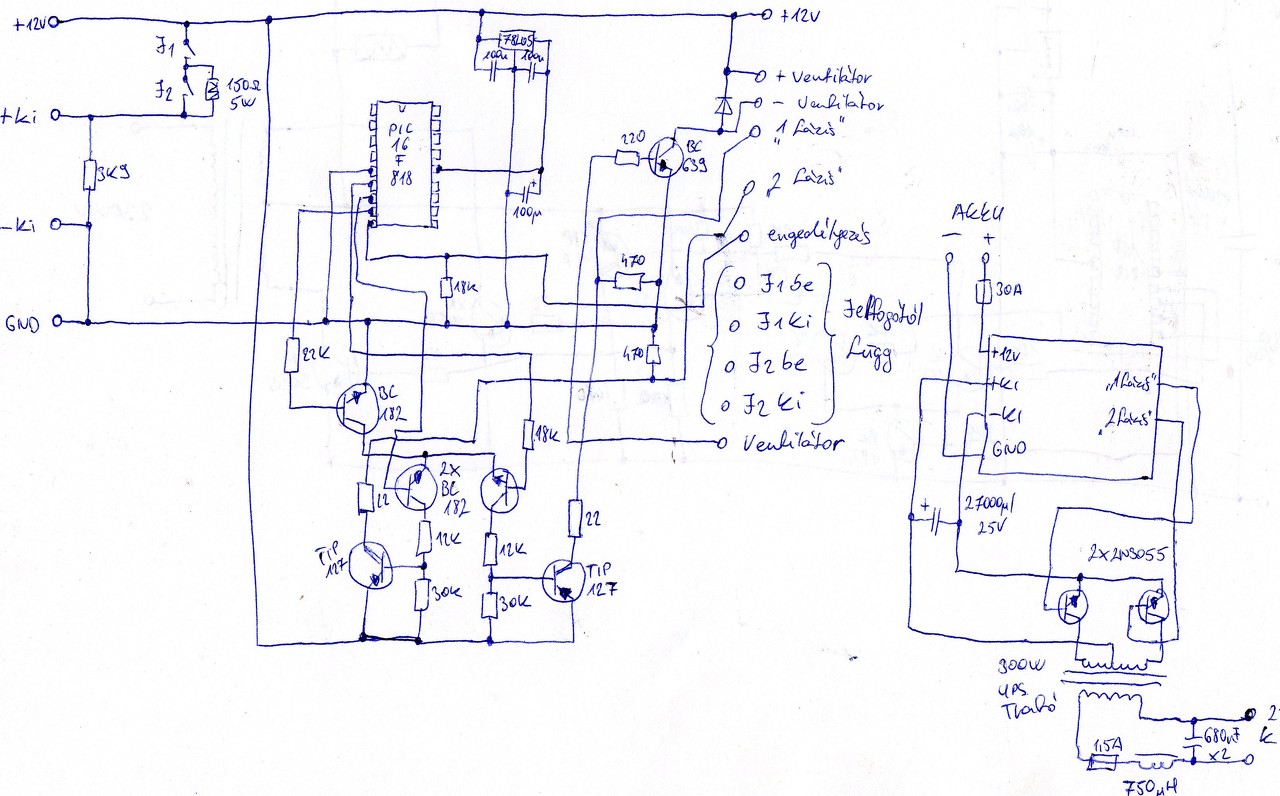 +12V
J1
J2
150Ω
5W
+ki
3K9
-ki
GND
78L05
100n
100n
PIC
16
F
818
100µ
18K
22K
BC
182
2x
BC
182
22
TIP
127
12K
30K
12K
30K
18K
22
TIP
127
220
BC
639
470
470
+12V
+ Ventilátor
- Ventilátor
"1 fázis"
"2 fázis"
engedélyezés
J1 be
J1 ki
J2 be
J2 ki
Jelfogótól
függ
Ventilátor
AKKU
- +
30A
+12V
+KI
-KI
GND
"1 fázis"
"2 fázis"
+
27000µ/
25V
2x2N3055
300W
UPS
Trafó
1,5A
750µH
680nF
x2
2
k